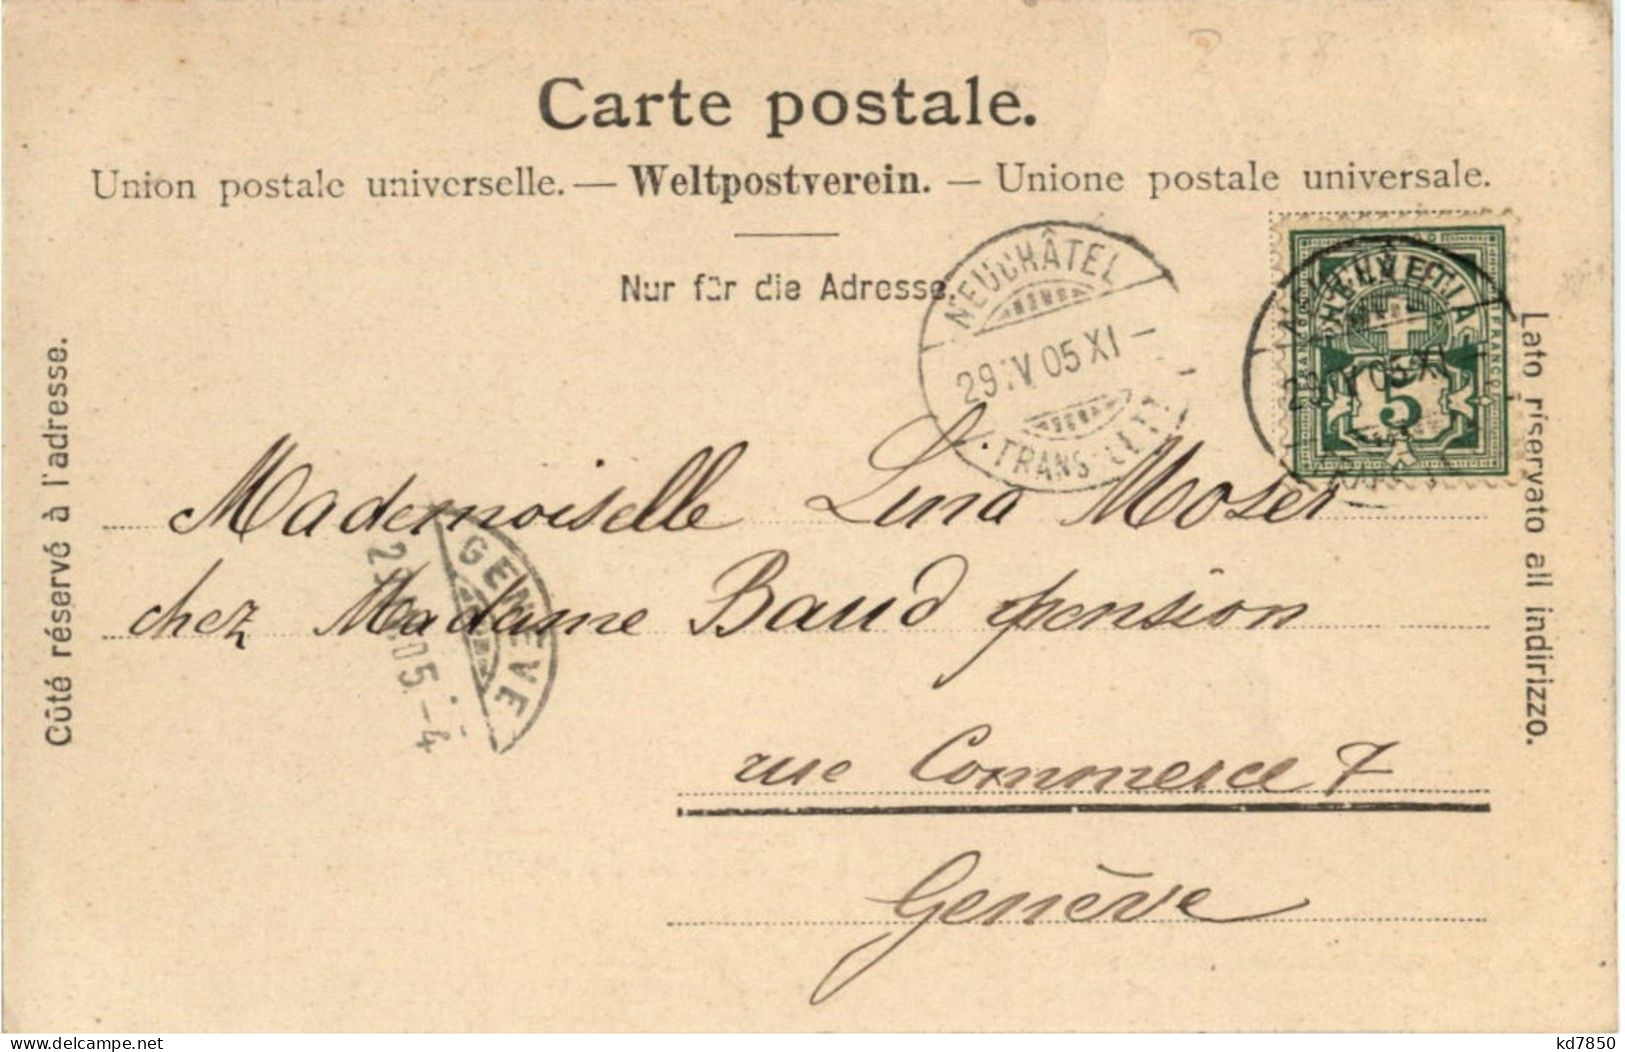 Carte postale.
Union postale universelle. — Weltpostverein. — Unione postale universale.
Nur für die Adresse.
Côté réservé à l'adresse.
Lato riservato all indirizzo.
NEUCHÂTEL
29 IV 05 XI –
TRANSIT LETT
HELVETIA
FRANCO
5
29 IV 05 XI
GENÈVE
05. – 4
Mademoiselle Lina Moser
chez Madame Baud pension
rue Commerce 7
Genève
delcampe.net
kd7850